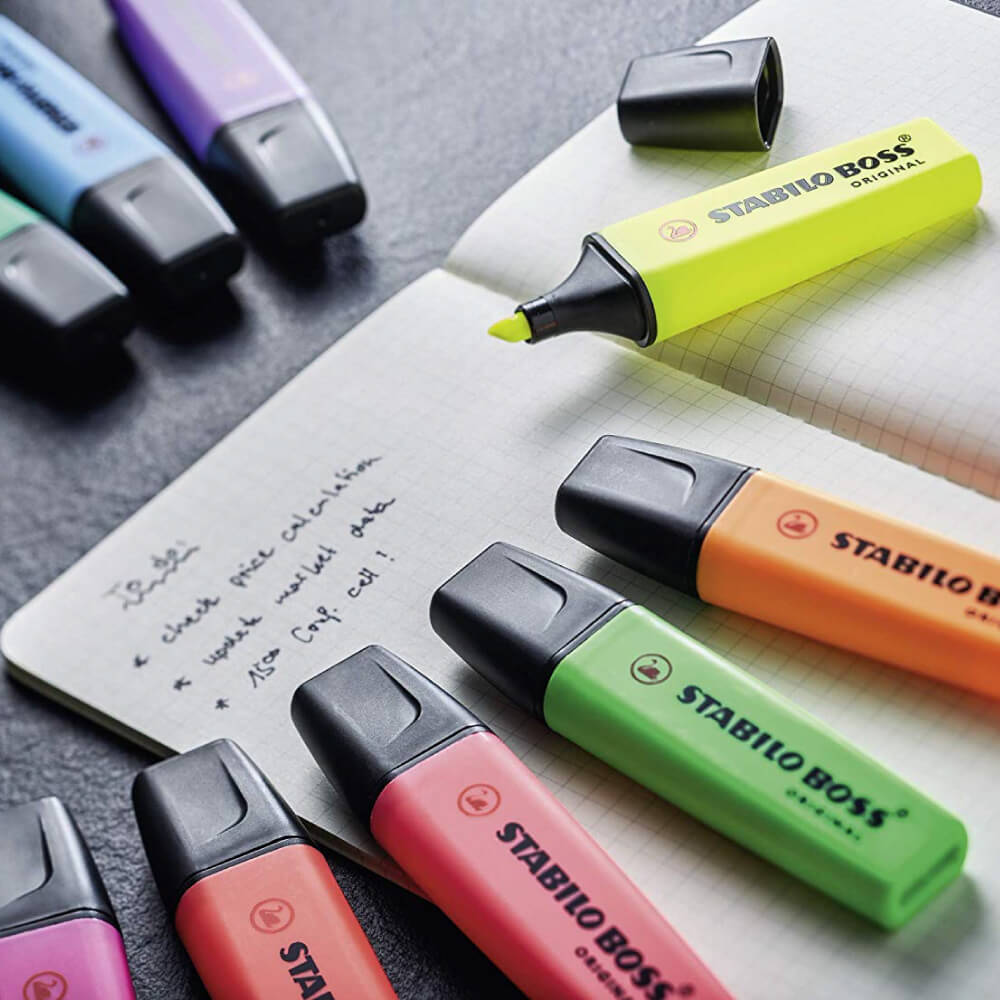 STABILO BOSS
STABILO BOSS®
ORIGINAL
To do:
* check price calculation
* update market data
* 1500 Conf. call!
STABILO B
STABILO BOSS®
ORIGINAL
STABILO BOSS®
ORIGINAL
STA